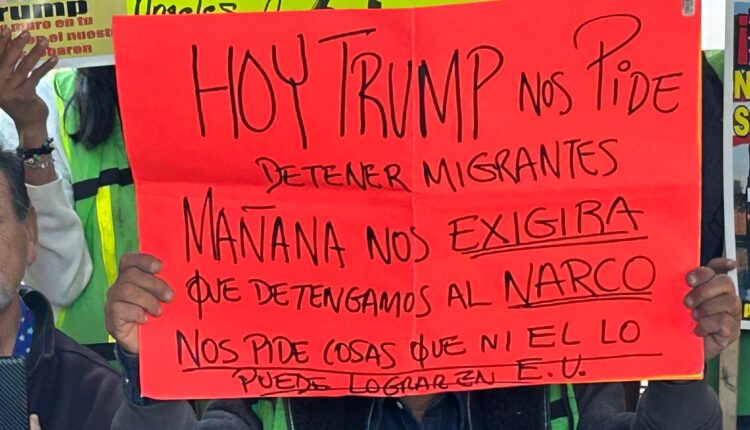 Trump
muro en tu
el nuest
HOY TRUMP NOS PIDE
DETENER MIGRANTES
MAÑANA NOS EXIGIRA
QUE DETENGAMOS AL NARCO
NOS PIDE COSAS QUE NI EL LO
PUEDE LOGRAR EN E.U.